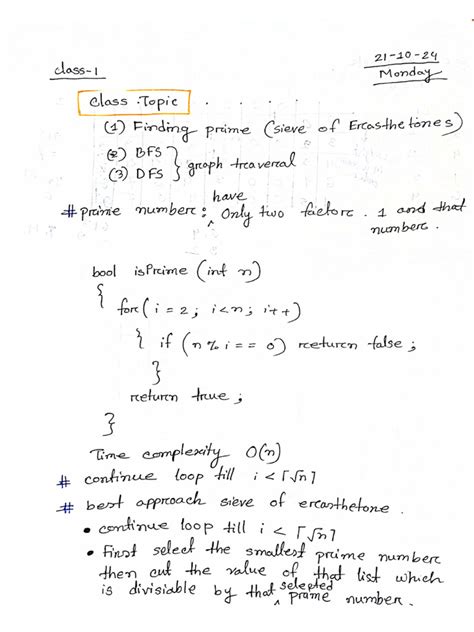 21-10-24
class-1
Monday
Class Topic . . . . .
(1) Finding prime (sieve of Erasthetones)
(2) BFS
(3) DFS } graph traversal
have
# prime number : ^ Only two factor . 1 and that
number .
bool isPrime (int n)
{
for( i = 2 ; i<n ; i++)
{ if (n % i == 0) return false ;
}
return true ;
}
Time complexity O(n)
# continue loop till i < ⌈√n⌉
# best approach sieve of erasthetone .
• continue loop till i < ⌈√n⌉
• First select the smallest prime number
then cut the value of that list which
is divisiable by that ^ selected prime number .